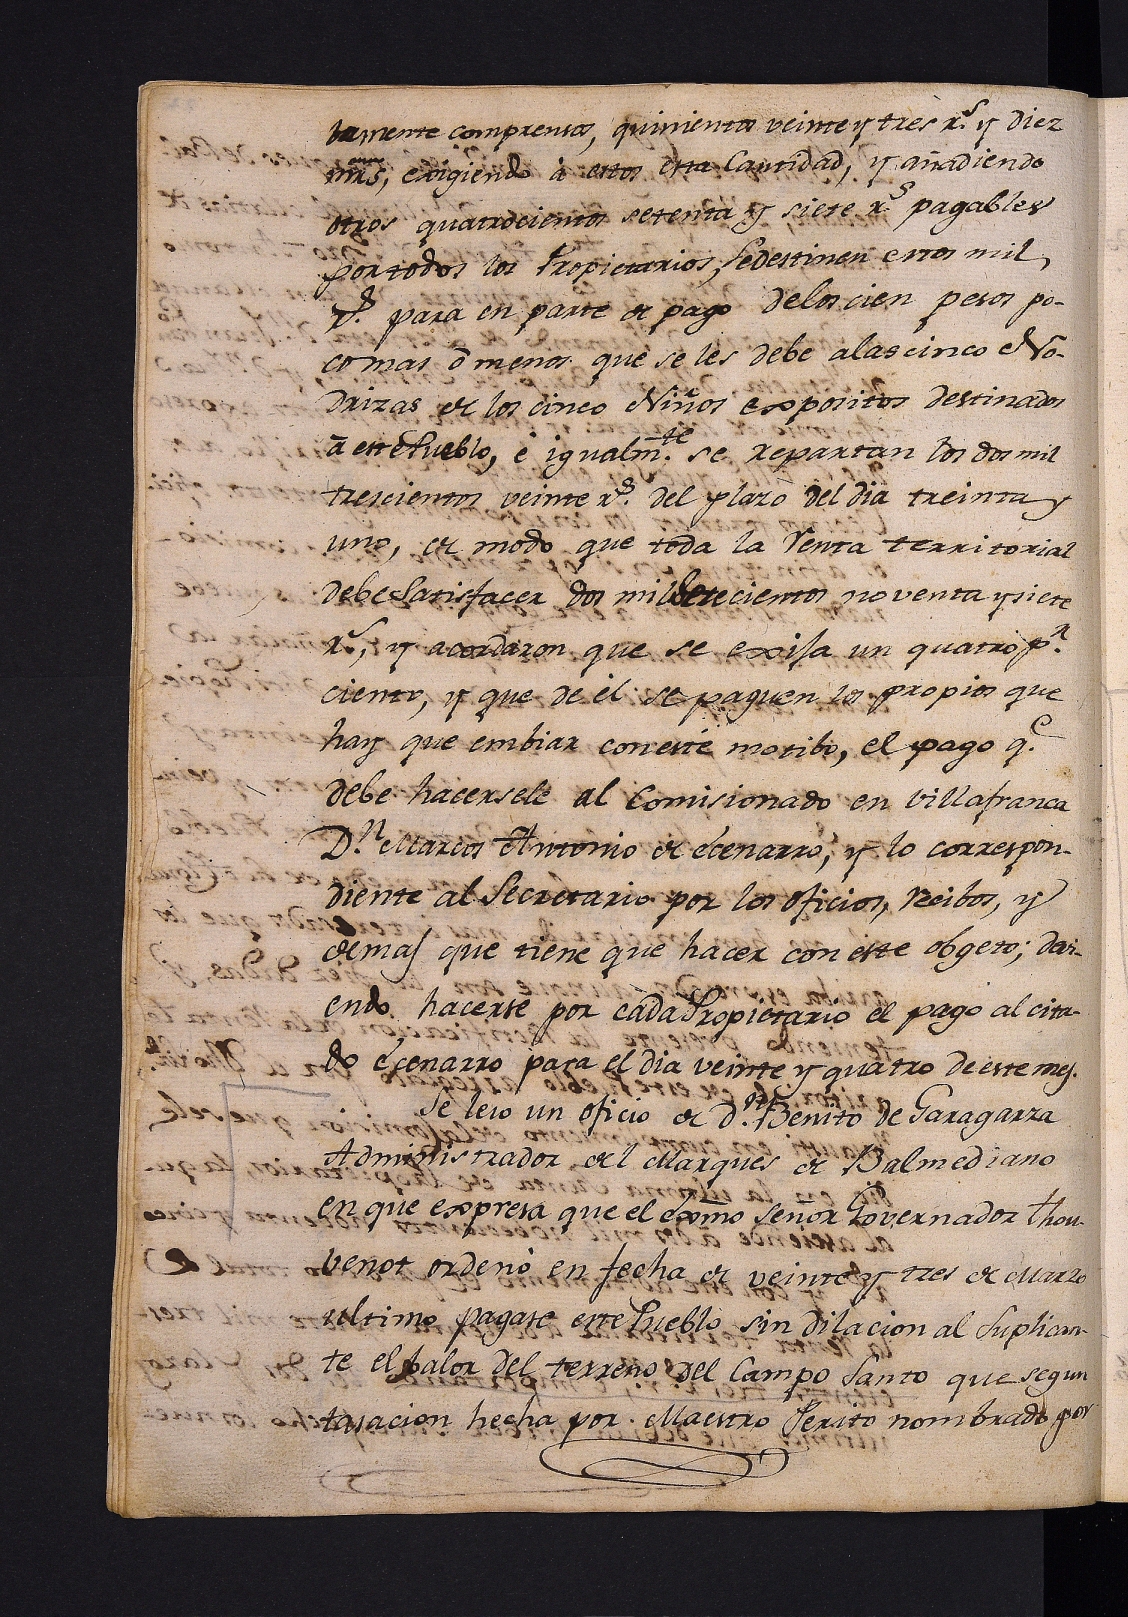 tamente comprensos, quinientos veinte y tres r.s y diez
mrs, exigiendo à estos esta Cantidad, y añadiendo
otros quatrocientos setenta y siete r.s pagables
por todos los Propietarios, se destinen estos mil
r.s para en parte de pago de los cien pesos po-
co mas ó menos que se les debe a las cinco No-
drizas de los cinco Niños expositos destinados
à este Pueblo, é igualm.te se repartan los dos mil
trescientos veinte r.s del plazo del dia treinta y
uno, de modo que toda la Renta territorial
debe satisfacer dos mil setecientos noventa y siete
r.s, y acordaron que se exija un quatro p.r
ciento, y que de él se paguen los propios que
hay que embiar con este motibo, el pago q.e
debe hacersele al Comisionado en Villafranca
D.n Marcos Antonio de Ecenarro, y lo correspon-
diente al Secretario por los oficios, recibos, y
demas que tiene que hacer con este obgeto; debi-
endo hacerse por cada Propietario el pago al cita-
do Ecenarro para el dia veinte y quatro de este mes.
Se leio un oficio de D.n Benito de Garagarza
Administrador del Marques de Balmediano
en que expresa que el Exmo Señor Governador Thou-
benot ordenó en fecha de veinte y tres de Marzo
ultimo pagase este Pueblo sin dilacion al Suplican-
te el balor del terreno del Campo Santo que segun
tasacion hecha por Maestro Perito nombrado por